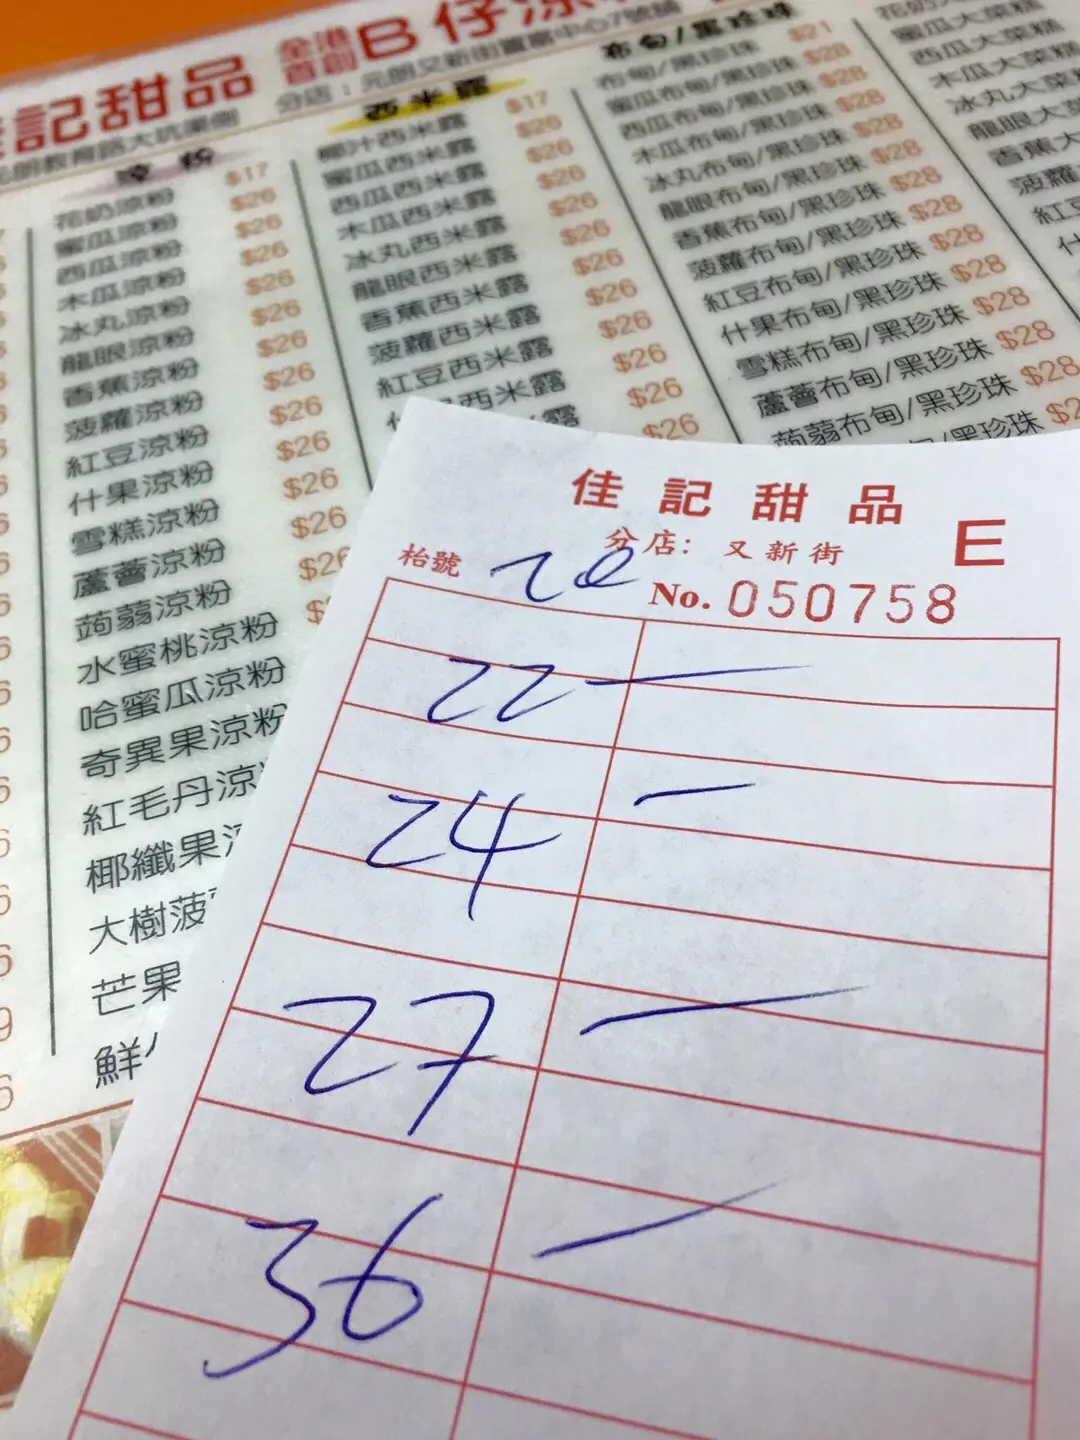 記甜品 全港首創 B仔涼
分店：元朗又新街寶富中心7號舖
元朗教育路大坑渠側
涼粉
花奶涼粉 $17
蜜瓜涼粉 $26
西瓜涼粉 $26
木瓜涼粉 $26
冰丸涼粉 $26
龍眼涼粉 $26
香蕉涼粉 $26
菠蘿涼粉 $26
紅豆涼粉 $26
什果涼粉 $26
雪糕涼粉 $26
蘆薈涼粉 $26
蒟蒻涼粉
水蜜桃涼粉
哈蜜瓜涼粉
奇異果涼粉
紅毛丹涼
椰纖果
大樹菠
芒果
鮮
西米露
椰汁西米露 $17
蜜瓜西米露 $26
西瓜西米露 $26
木瓜西米露 $26
冰丸西米露 $26
龍眼西米露 $26
香蕉西米露 $26
菠蘿西米露 $26
紅豆西米露 $26
什 西米露 $26
露 $26
布甸/黑珍珠
布甸/黑珍珠 $21
蜜瓜布甸/黑珍珠 $28
西瓜布甸/黑珍珠 $28
木瓜布甸/黑珍珠 $28
冰丸布甸/黑珍珠 $28
龍眼布甸/黑珍珠 $28
香蕉布甸/黑珍珠 $28
菠蘿布甸/黑珍珠 $28
紅豆布甸/黑珍珠 $28
什果布甸/黑珍珠 $28
雪糕布甸/黑珍珠 $28
蘆薈布甸/黑珍珠 $28
蒟蒻布甸/黑珍珠 $28
/黑珍珠
花奶大
蜜瓜大菜糕
西瓜大菜糕
木瓜大菜糕
冰丸大菜糕
龍眼大菜
香蕉大
菠蘿
紅豆
什
佳記甜品
分店：又新街 E
枱號 20 No. 050758
22 一
24 一
27 一
36 一